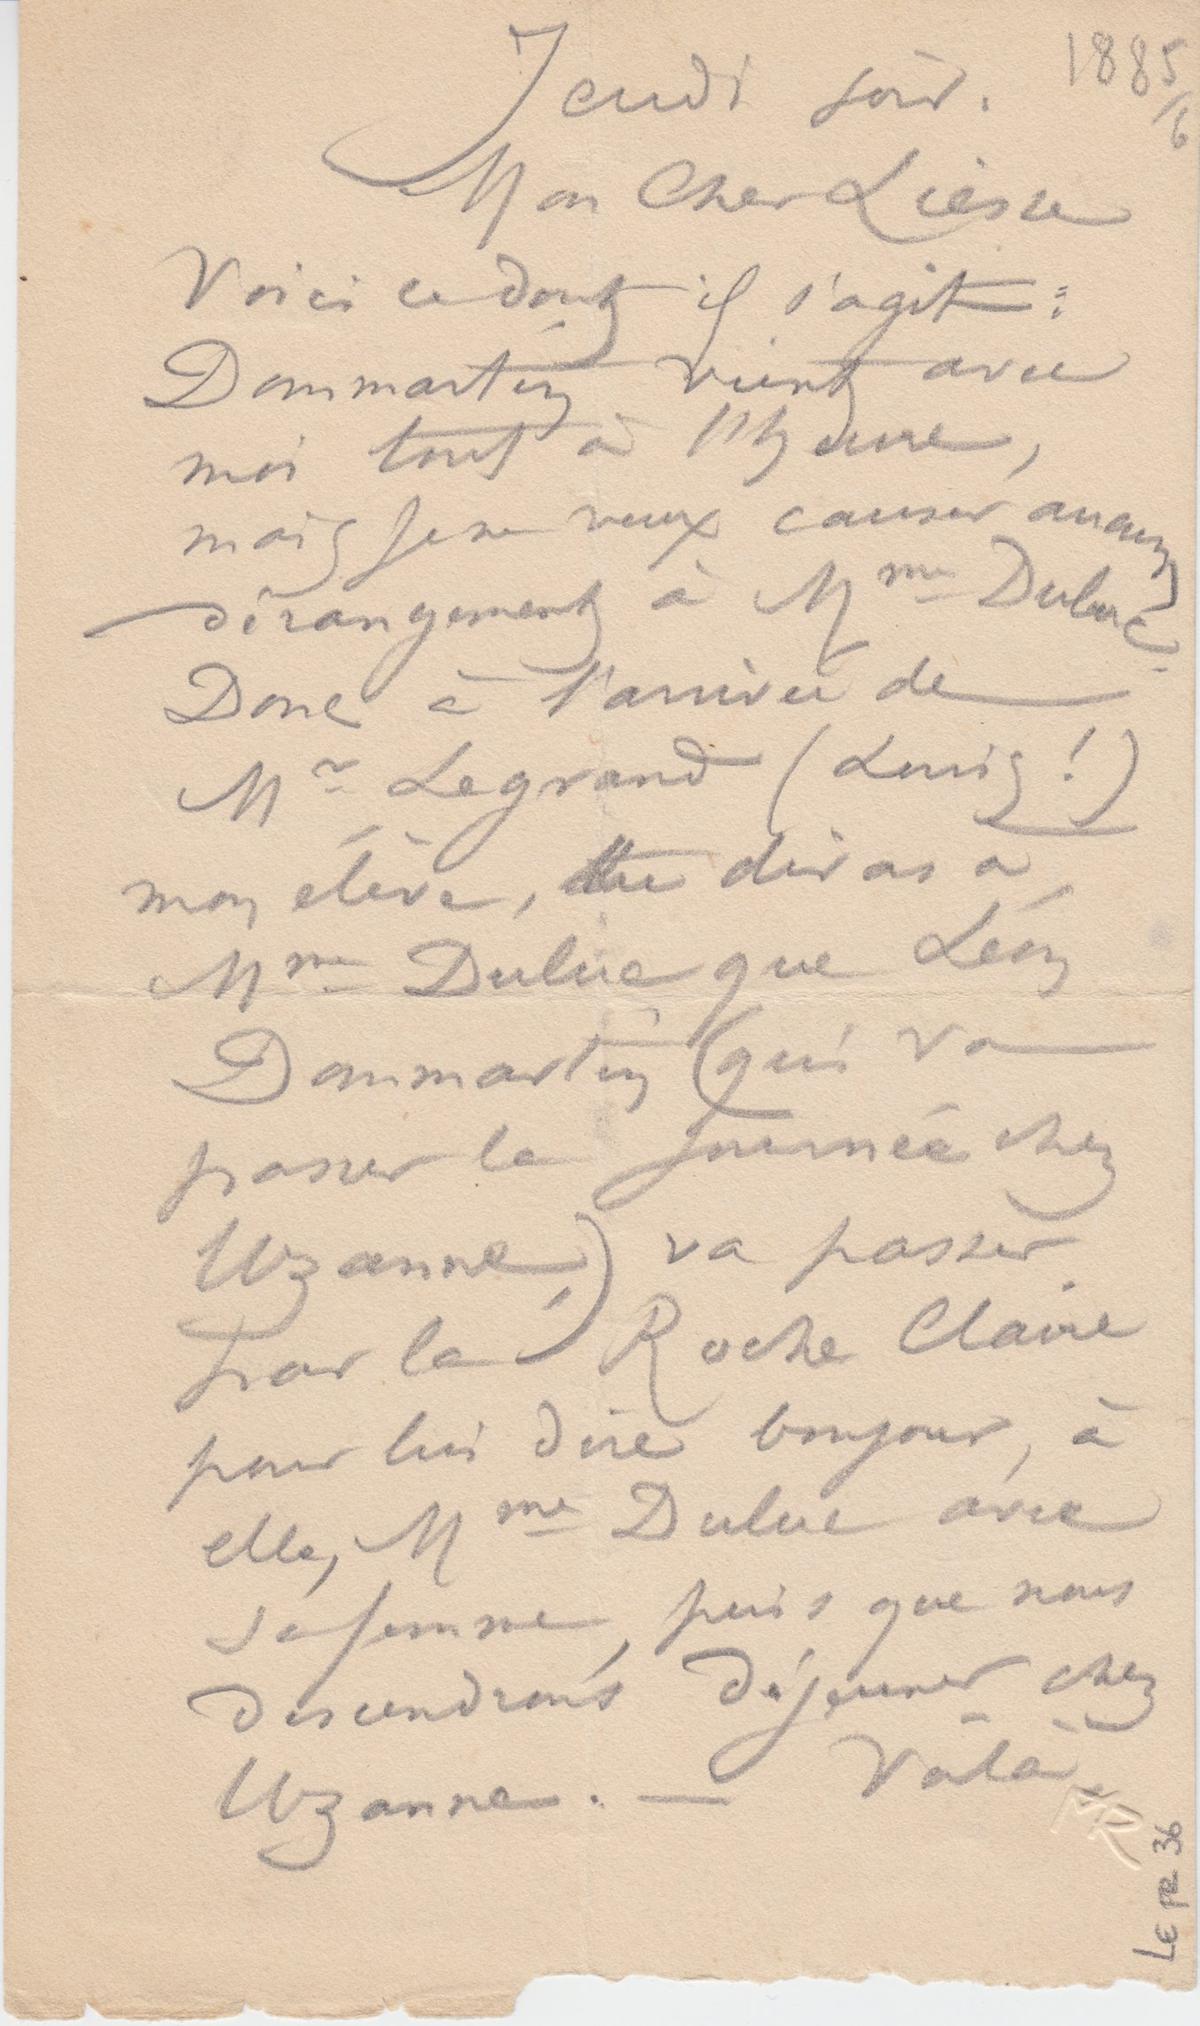 Jeudi soir. 1885/6
Mon Cher Liesse
Voici ce dont il s'agit :
Dommartin vient avec
moi tout à l'heure,
mais je ne veux causer aucun
dérangement à Mme Duluc.
Donc à l'arrivée de
Mr Legrand (Louis !)
mon élève, tu diras à
Mme Duluc que Léon
Dommartin (qui va
passer la journée chez
Uzanne,) va passer
par la Roche Claire
pour lui dire bonjour, à
elle, Mme Duluc avec
sa femme, puis que nous
descendrons déjeuner chez
Uzanne. — Voilà
MR
LEPR 36